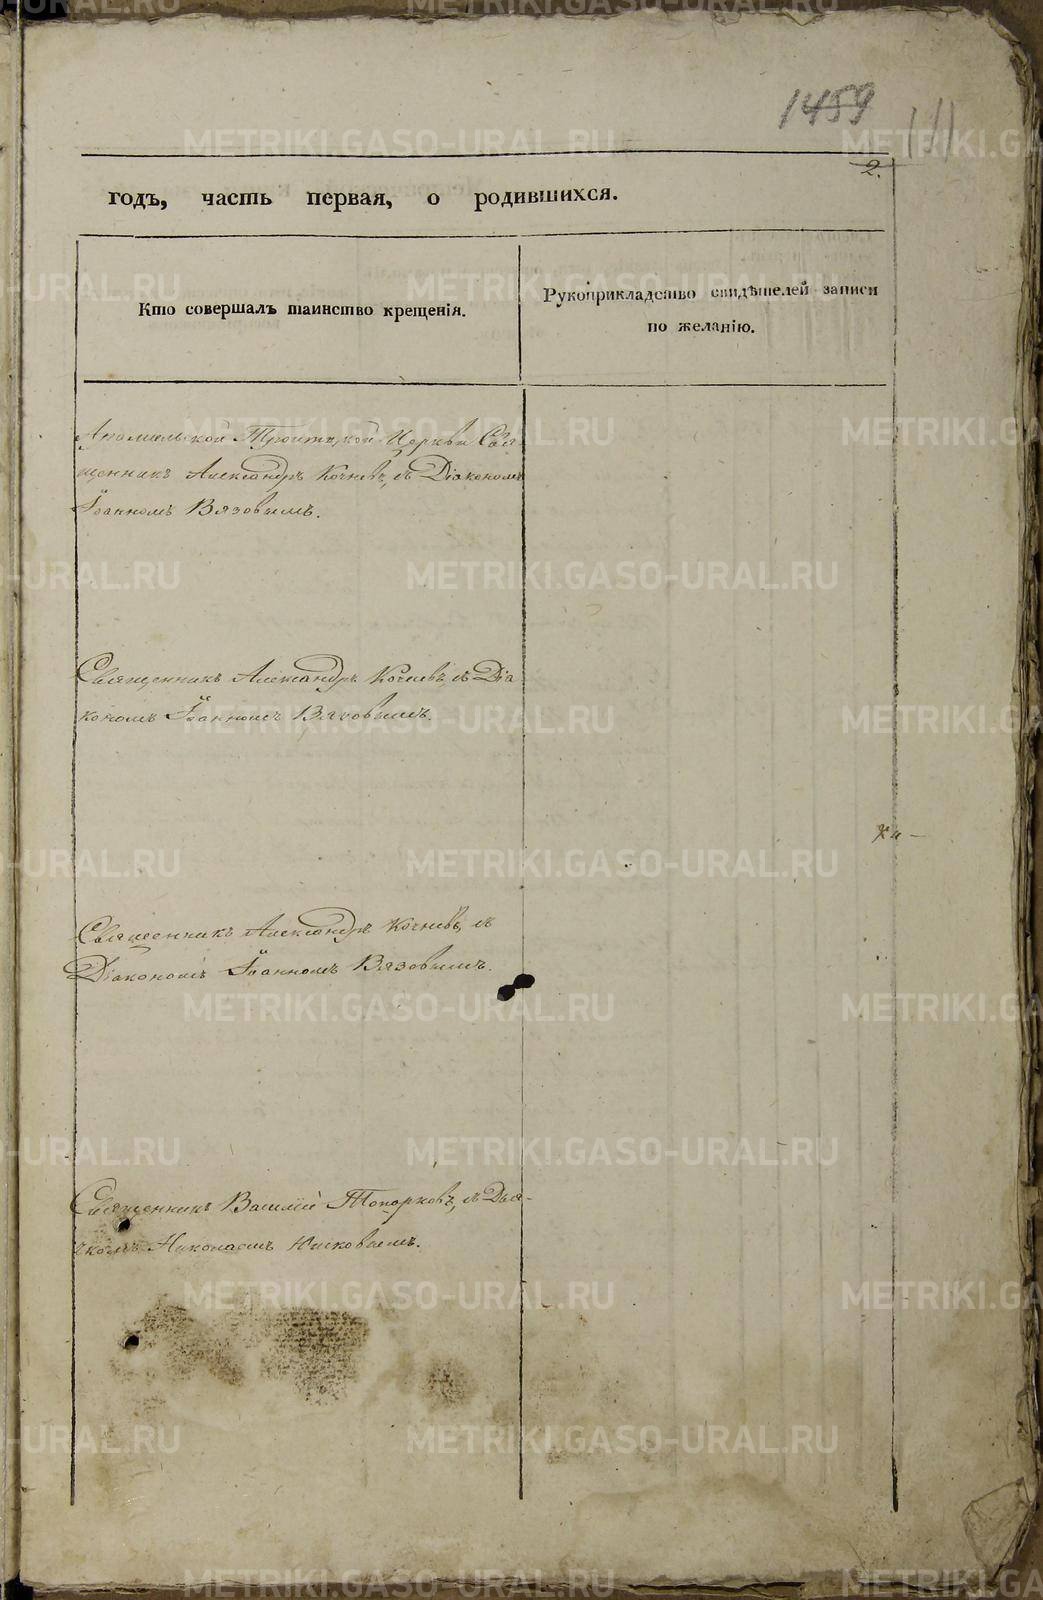 1459
2.
годъ, часть первая, о родившихся.
Кто совершалъ таинство крещенія.
Рукоприкладство свидѣтелей записи
по желанію.
Арамильской Троитской Церкви Свя-
щенникъ Александръ Кочневъ, съ Діакономъ
Іоанномъ Вязовымъ.
Священникъ Александръ Кочневъ, съ Діа
кономъ Іоанномъ Вязовымъ.
Священникъ Александръ Кочневъ, съ
Діакономъ Іоанномъ Вязовымъ.
Священникъ Василій Топорковъ, съ Дья-
чкомъ Николаемъ
METRIKI.GASO-URAL.RU